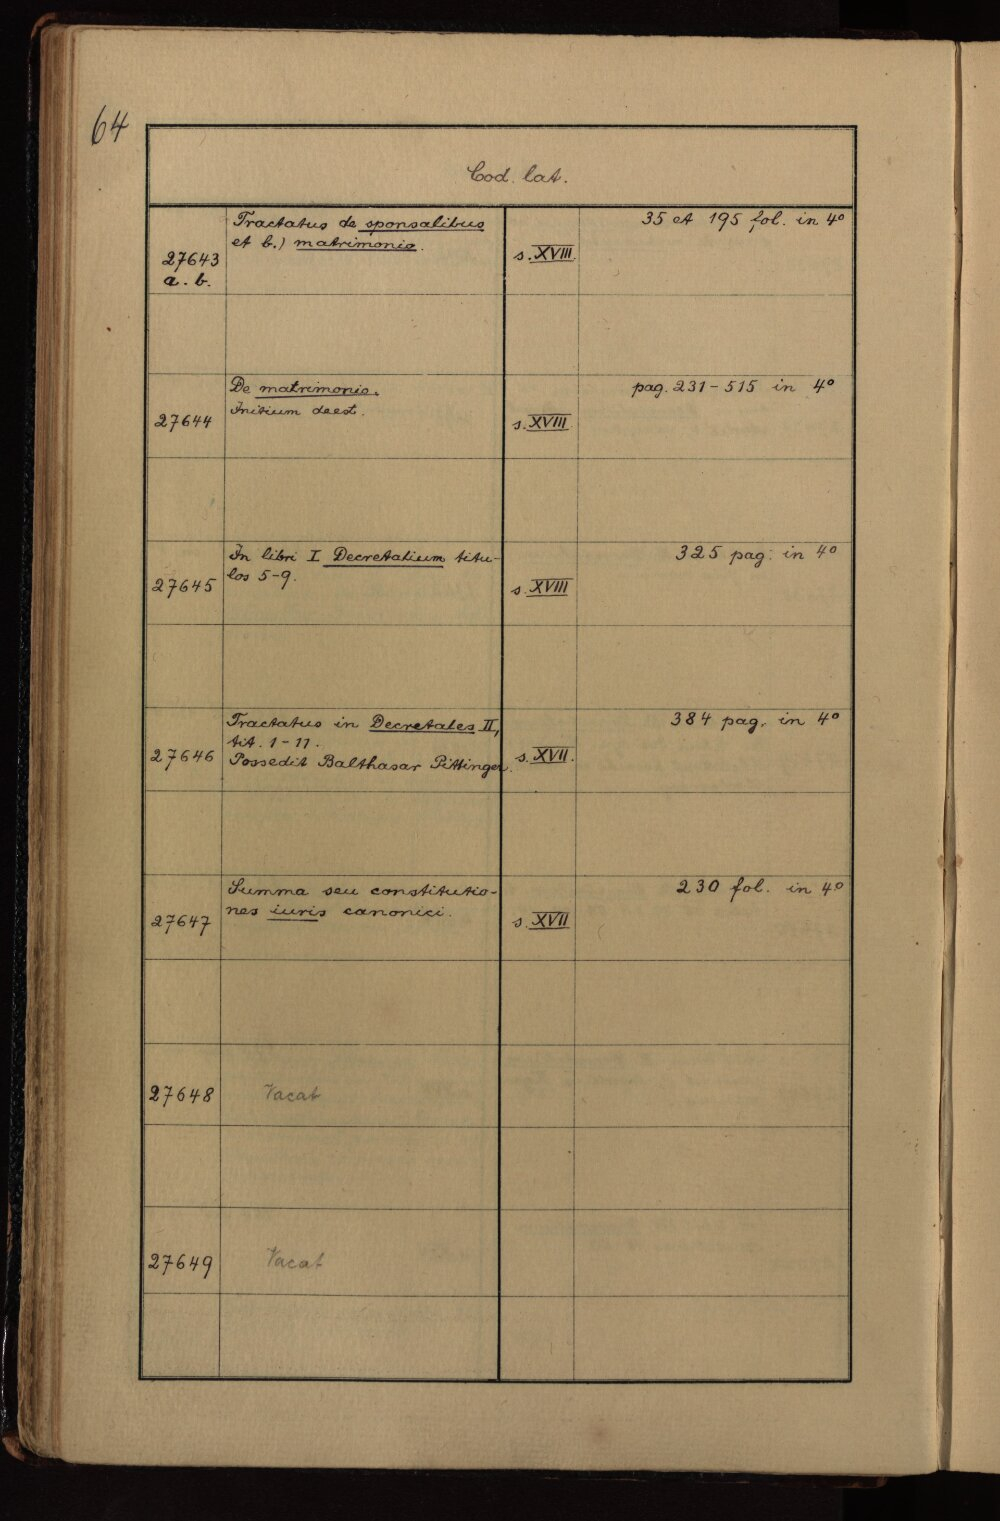 64
Cod. lat.
27643
a. b.
Tractatus de sponsalibus
et b.) matrimonio.
s. XVIII.
35 et 195 fol. in 4°
27644
De matrimonio.
Initium deest.
s. XVIII.
pag. 231-515 in 4°
27645
In libri I Decretalium titu-
los 5-9.
s. XVIII
325 pag. in 4°
27646
Tractatus in Decretales II,
tit. 1-11.
Possedit Balthasar Pittinger.
s. XVII.
384 pag. in 4°
27647
Summa seu constitutio-
nes iuris canonici.
s. XVII
230 fol. in 4°
27648
Vacat
27649
Vacat